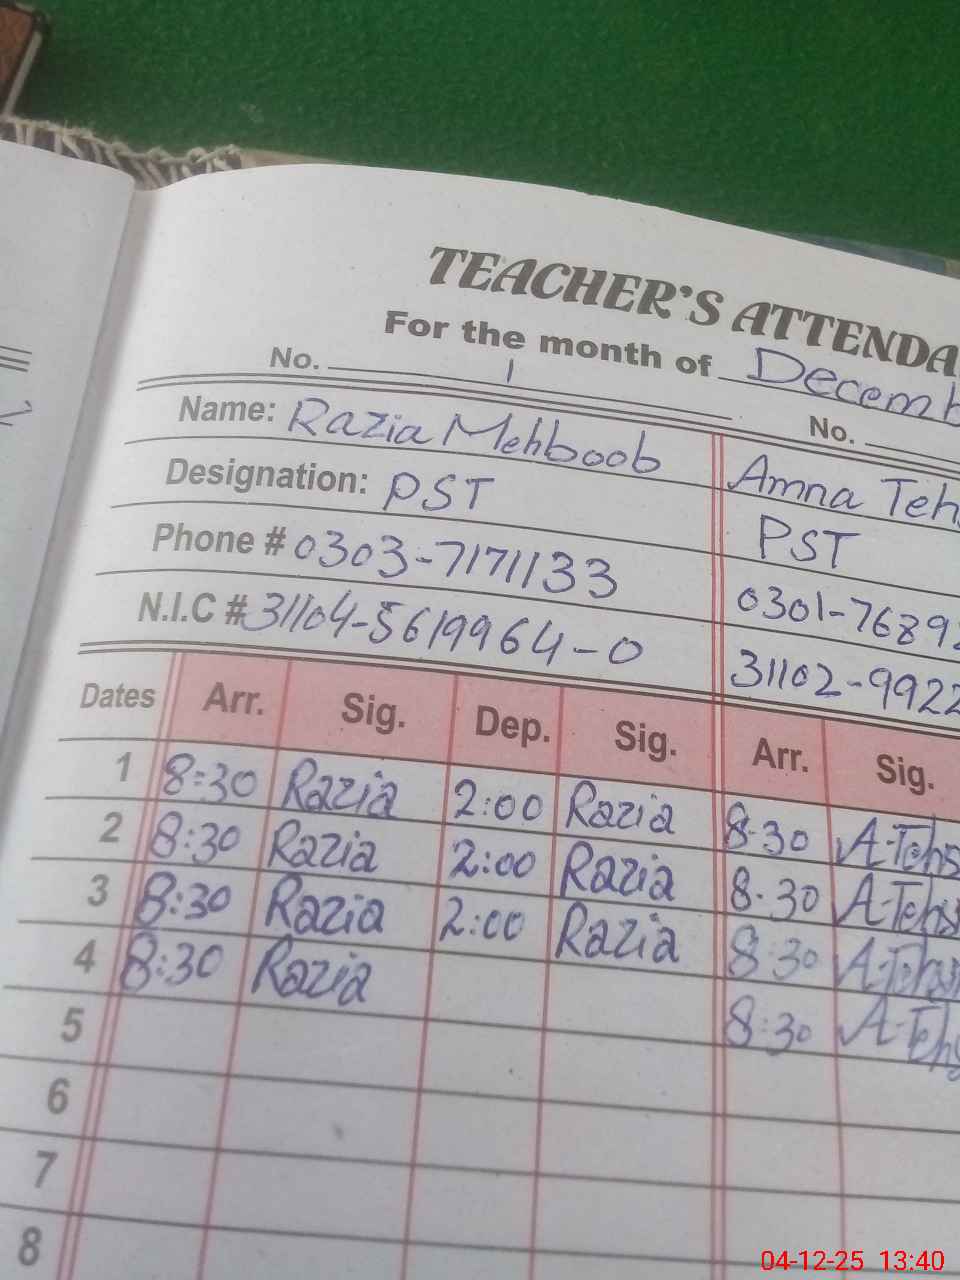 TEACHER'S ATTENDA
For the month of Decemb
No. 1 No.
Name: Razia Mehboob Amna Teh
Designation: PST PST
Phone # 0303-7171133 0301-7689
N.I.C # 31104-5619964-0 31102-9922
Dates Arr. Sig. Dep. Sig. Arr. Sig.
1 8:30 Razia 2:00 Razia 8:30 A-Tehs
2 8:30 Razia 2:00 Razia 8:30 A-Teh
3 8:30 Razia 2:00 Razia 8:30 A-Teh
4 8:30 Razia 8:30 A-Teh
5
6
7
8
04-12-25 13:40